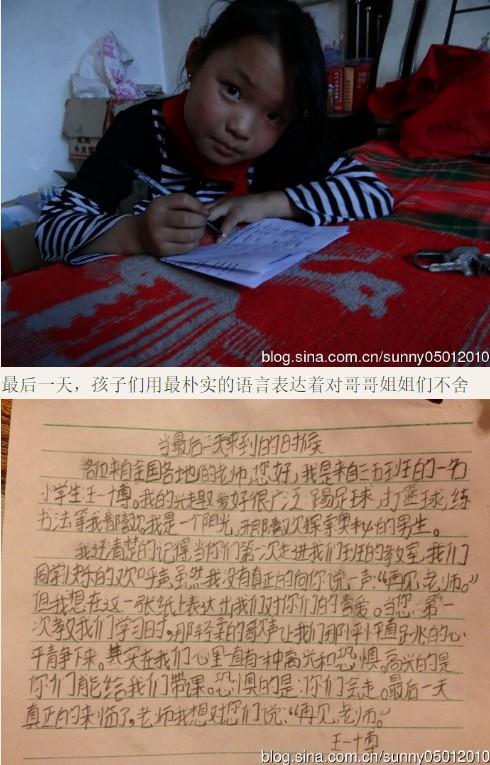 blog.sina.com.cn/sunny05012010
最后一天，孩子们用最朴实的语言表达着对哥哥姐姐们不舍
当最后一天来到的时候
各位来自全国各地的老师，您好，我是来自三五班的一名
小学生王一博。我的兴趣爱好很广泛，踢足球，打篮球，练
书法等我都喜欢。我是一个阳光，喜欢探索奥秘的男生。
我还清楚的记得当你们第一次走进我们班的教室，我们
同学快乐的欢呼声，虽然我没有真正的向你说一声“再见，老师。”
但我想在这一张纸上表达出我们对你们的喜爱。当您第一
次教我们学习时，那轻柔的歌声让我们那怦怦直跳的心
平静下来。其实在我们心里一直有一种高兴和恐惧。高兴的是
你们能给我们带课。恐惧的是：你们会走。最后一天
真正的来临了，老师我想对您们说：“再见，老师。”
王一博
blog.sina.com.cn/sunny05012010